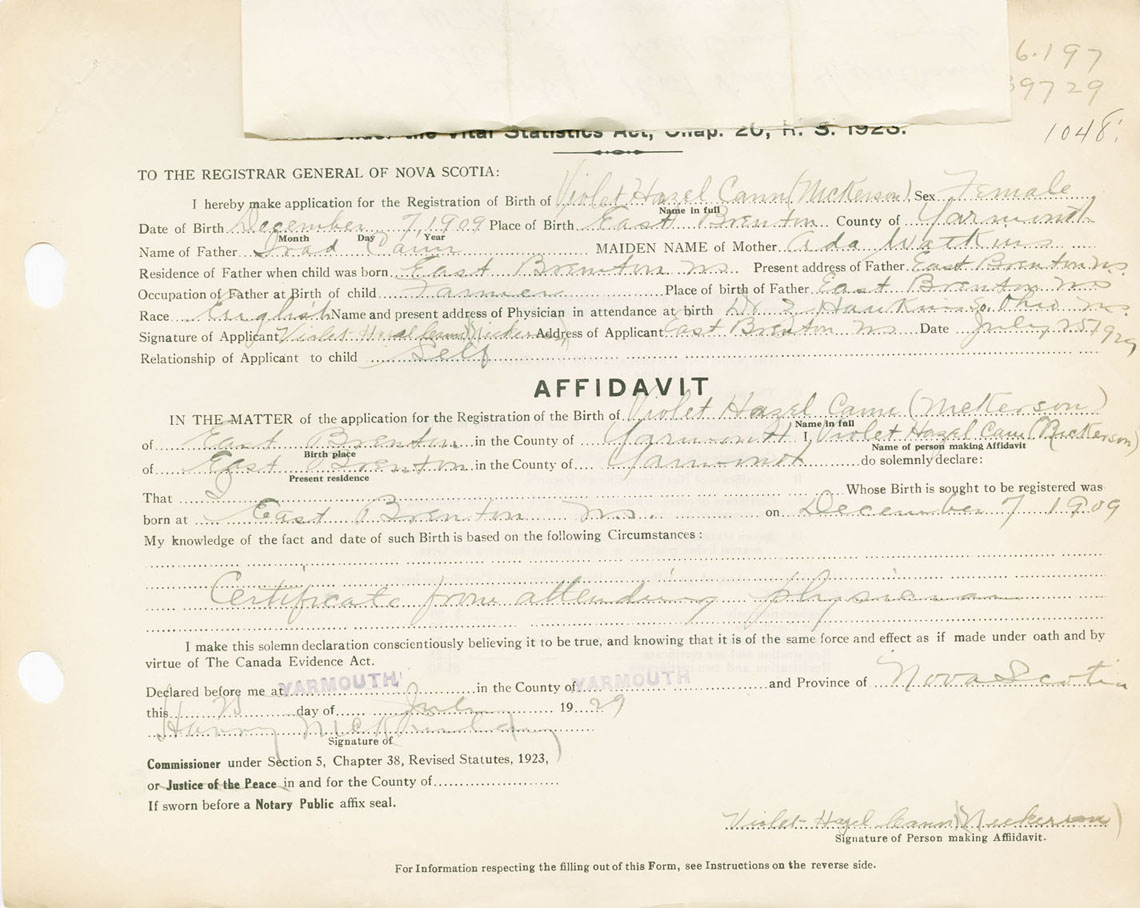 6.197
39729
1048
Under the Vital Statistics Act, Chap. 20, R. S. 1923.
TO THE REGISTRAR GENERAL OF NOVA SCOTIA:
I hereby make application for the Registration of Birth of Violet Hazel Cann (Nickerson) Sex Female
Name in full
Date of Birth December 7, 1909 Place of Birth East Brenton County of Yarmouth
Month Day Year
Name of Father Cann MAIDEN NAME of Mother Ada Watkins
Residence of Father when child was born East Brenton N.S. Present address of Father East Brenton N.S.
Occupation of Father at Birth of child Farmer Place of birth of Father East Brenton N.S.
Race English Name and present address of Physician in attendance at birth Dr Hawkins Ohio N.S.
Signature of Applicant Violet Hazel Cann (Nickerson) Address of Applicant East Brenton N.S. Date July 25 1929
Relationship of Applicant to child Self
AFFIDAVIT
IN THE MATTER of the application for the Registration of the Birth of Violet Hazel Cann (Nickerson)
Name in full
of East Brenton in the County of Yarmouth I, Violet Hazel Cann (Nickerson)
Birth place Name of person making Affidavit
of East Brenton in the County of Yarmouth do solemnly declare:
Present residence
That I Whose Birth is sought to be registered was
born at East Brenton N.S. on December 7 1909
My knowledge of the fact and date of such Birth is based on the following Circumstances:
Certificate from attending physician
I make this solemn declaration conscientiously believing it to be true, and knowing that it is of the same force and effect as if made under oath and by
virtue of The Canada Evidence Act.
Declared before me at YARMOUTH in the County of YARMOUTH and Province of Nova Scotia
this 25 day of July 1929
Harry
Signature of
Commissioner under Section 5, Chapter 38, Revised Statutes, 1923,
or Justice of the Peace in and for the County of
If sworn before a Notary Public affix seal.
Violet Hazel Cann (Nickerson)
Signature of Person making Affidavit.
For Information respecting the filling out of this Form, see Instructions on the reverse side.